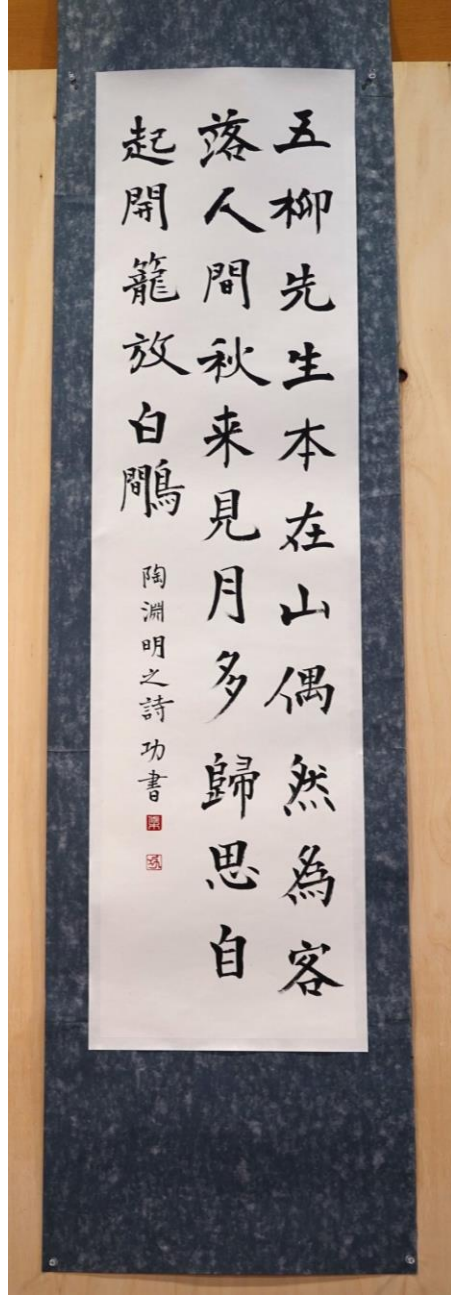 五柳先生本在山偶然為客
落人間秋来見月多歸思自
起開籠放白鷴
陶淵明之詩 功書